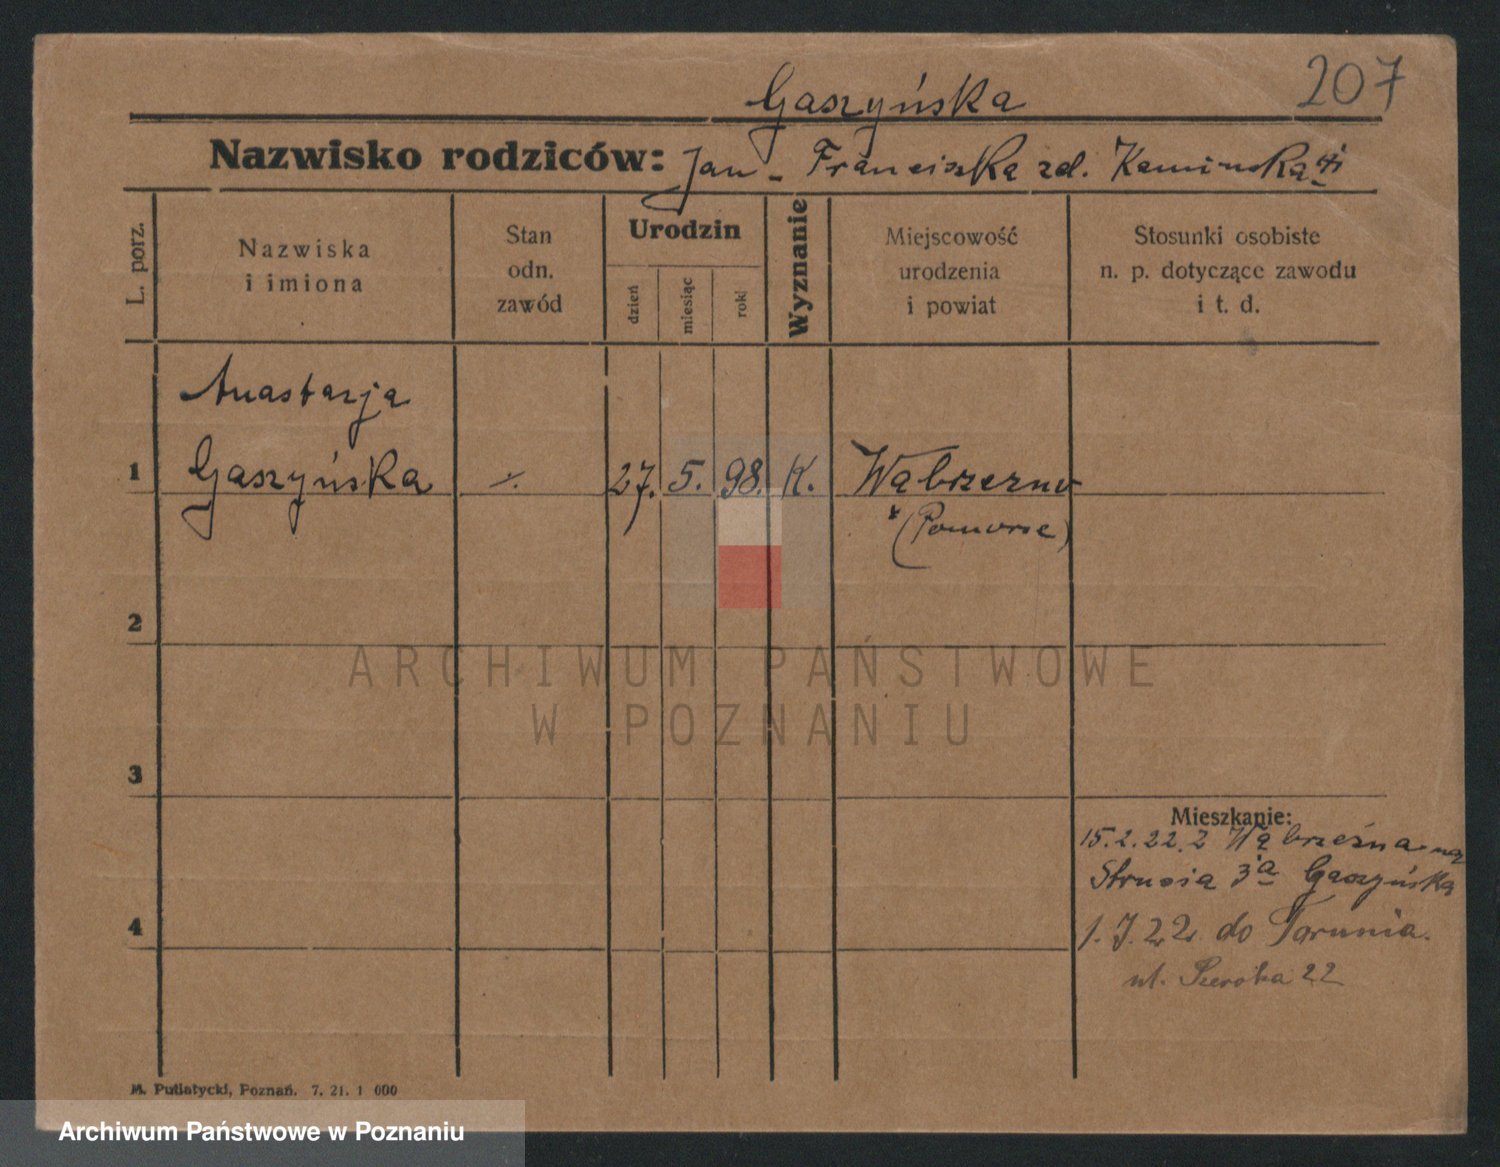 207
Gaszyńska
Nazwisko rodziców: Jan - Franciszka zd. Kamińska
L. porz.
Nazwiska
i imiona
Stan
odn.
zawód
Urodzin
dzień
miesiąc
rok
Wyznanie
Miejscowość
urodzenia
i powiat
Stosunki osobiste
n. p. dotyczące zawodu
i t. d.
Anastazja
1 Gaszyńska 27. 5. 98. K. Wąbrzezno
(Pomorze)
2
ARCHIWUM PAŃSTWOWE
W POZNANIU
3
Mieszkanie:
15.2.22. z Wąbrzeźna na
Strusia 3a Gaszyńska
4
1. 7. 22. do Torunia.
ul. Szeroka 22
M. Putiatycki, Poznań. 7. 21. 1 000
Archiwum Państwowe w Poznaniu